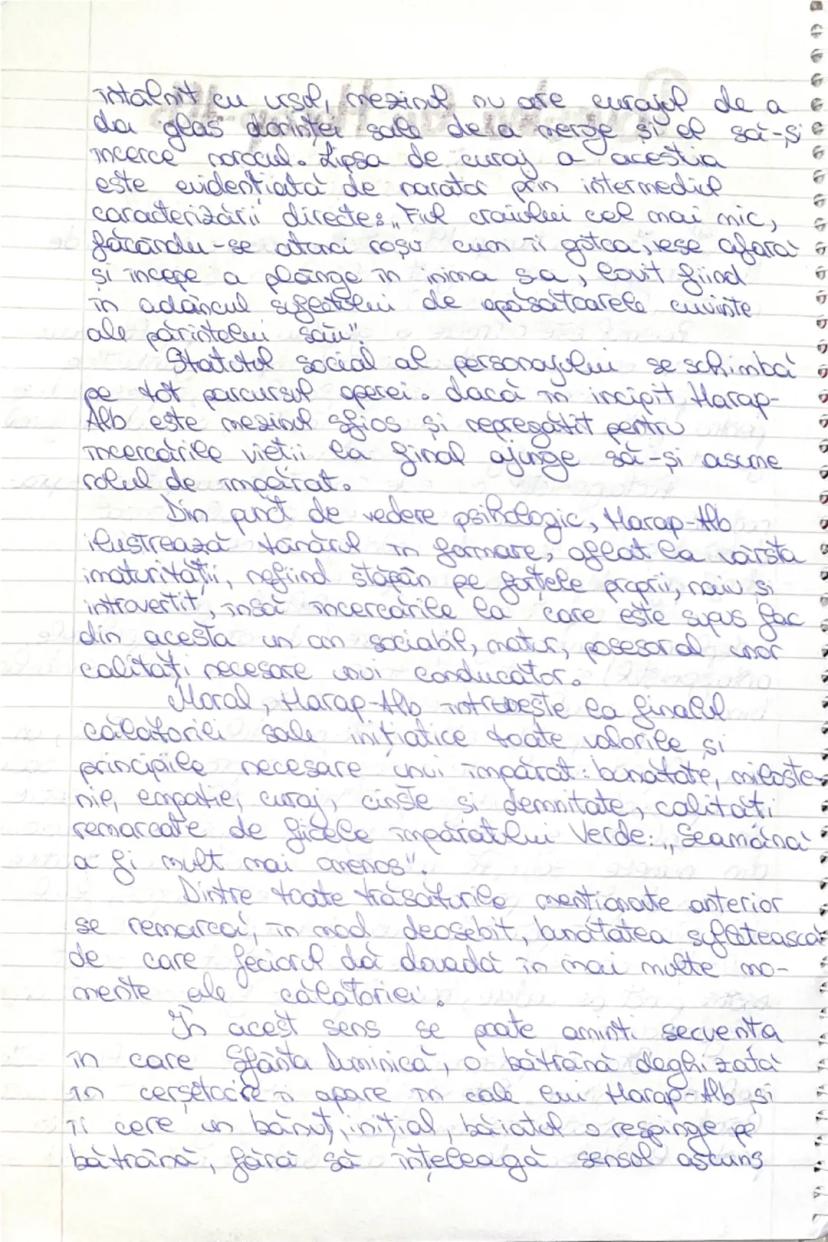 întâlnit cu ursul, mezinul nu are curajul de a
da glas dorinței sale de a merge și el să-și
încerce norocul. Lipsa de curaj a acestia
este evidentiată de narator prin intermediul
caracterizării directe: „Fiul craiului cel mai mic,
făcându-se atunci roșu cum îi gotca, iese afară
și începe a plânge în inima sa, lovit fiind
în adâncul sufletului de apăsătoarele cuvinte
ale părintelui său".
Statutul social al personajului se schimbă
pe tot parcursul operei. dacă în incipit Harap-
Alb este mezinul sfios și nepregătit pentru
încercările vietii la final ajunge să-și asume
rolul de împărat.
Din punct de vedere psihologic, Harap-Alb
ilustrează tânărul în formare, aflat la vârsta
imaturității, nefiind stăpân pe forțele proprii, naiv si
introvertit, însă încercările la care este supus fac
din acesta un om sociabil, matur, posesor al unor
calități necesare unui conducător.
Moral, Harap-Alb întrunește la finalul
călătoriei sale inițiatice toate valorile și
principiile necesare unui împărat: bunătate, miloste-
nie, empatie, curaj, cinste si demnitate, calități
remarcate de fiicele împăratului Verde: „Seamănă
a fi mult mai omenos".
Dintre toate trăsăturile mentionate anterior
se remarcă, în mod deosebit, bunătatea sufletească
de care feciorul dă dovadă în mai multe mo-
mente ale călătoriei.
În acest sens se poate aminti secventa
în care Sfânta Duminică, o bătrână deghizată
în cerșetoare îi apare în cale lui Harap-Alb și
îi cere un bănuț, inițial, băiatul o respinge pe
bătrână, fără să înțeleagă sensul ascuns